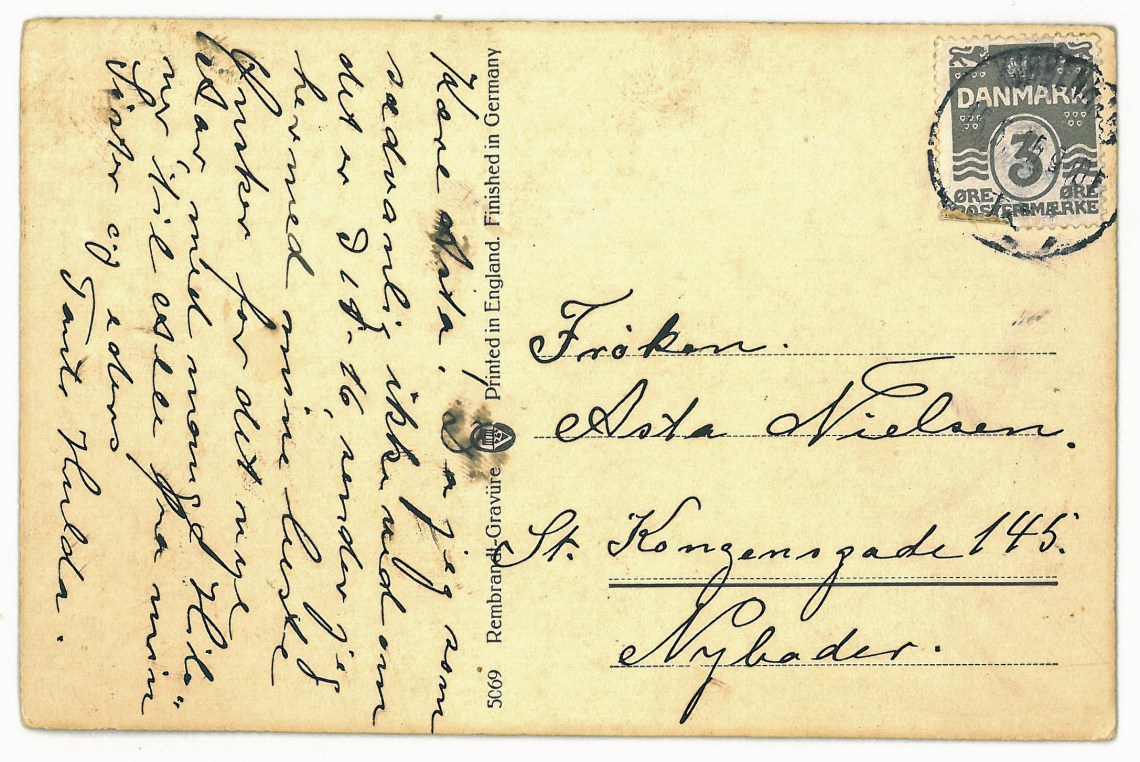 DANMARK
3
ØRE ØRE
POSTFRIMÆRKE
Kære Asta! Da jeg som
sædvanlig ikke ved om
det er 16, sender jeg
hermed mine bedste
Ønsker for det nye
Aar, med mange Hils"
ner, til fra min
Søster og eders
Tante Hulda.
5069 Rembrandt-Gravüre Printed in England. Finished in Germany
Frøken.
Asta Nielsen.
St. Kongensgade 145.
Nyboder.